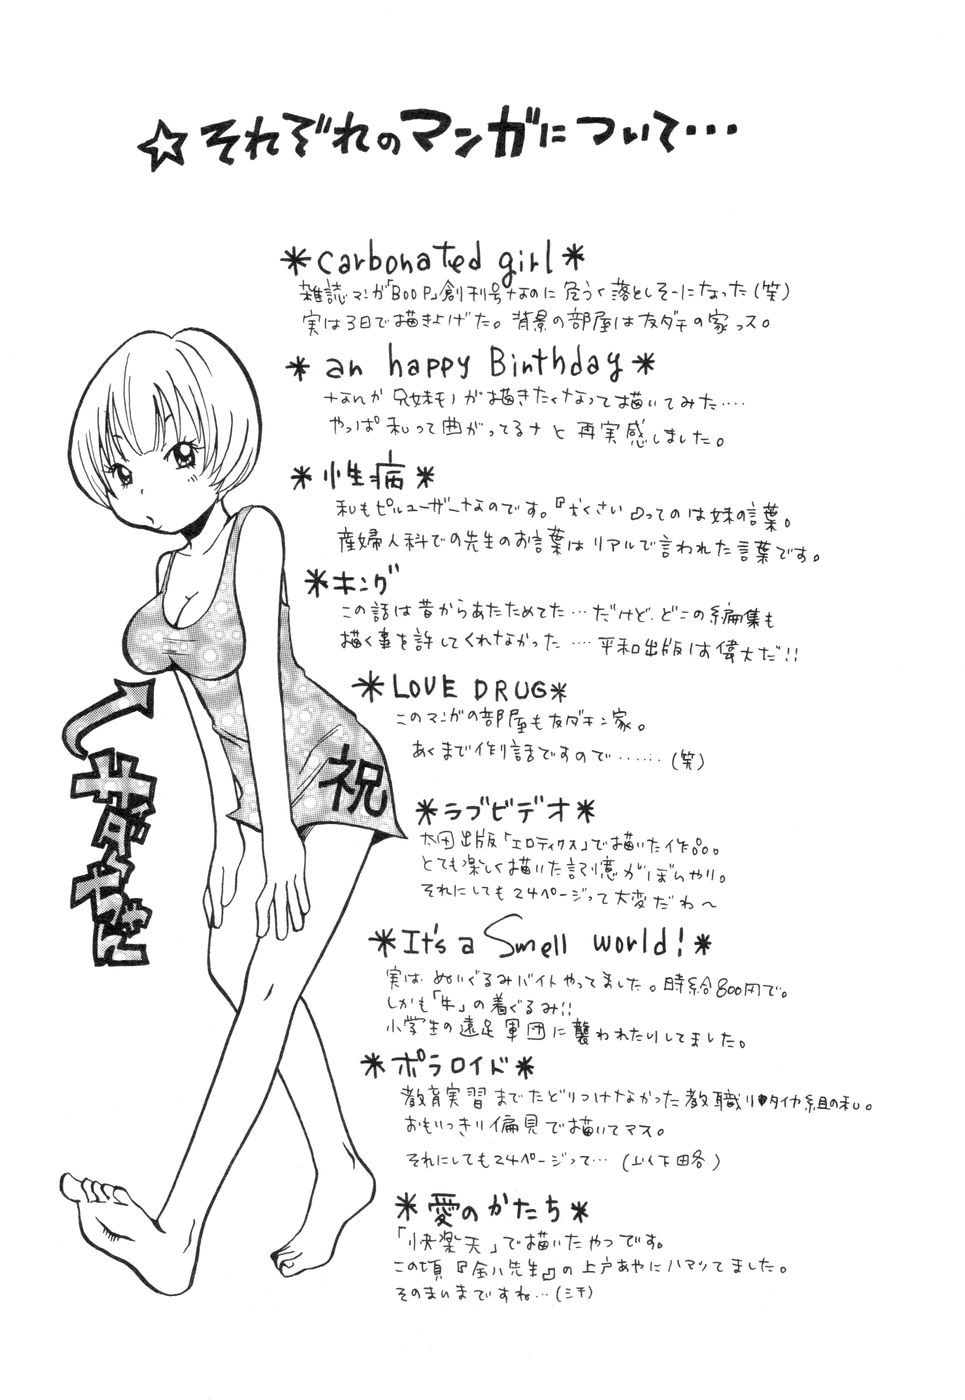 ☆それぞれのマンガについて・・・
*carbonated girl*
雑誌マンガ「BOOP」創刊号なのに危うく落としそーになった(笑)
実は3日で描きよげた。背景の部屋は友ダチの家っス。
*an happy Birthday*
なんか兄妹モノが描きたくなって描いてみた‥‥
やっぱ私って曲がってるナと再実感しました。
*性病*
私もピルユーザーなのです。『がくさい』ってのは妹の言葉。
産婦人科での先生のお言葉はリアルで言われた言葉です。
*キング
この話は昔からあたためてた…だけど、どこの編集も
描く事を許してくれなかった‥‥平和出版は偉大だ!!
*LOVE DRUG*
このマンガの部屋も友ダチン家。
あくまで作り話ですので……(笑)
*ラブビデオ*
太田出版「エロティクス」で描いた作。。。
とても楽しく描いた記憶がぼんやり。
それにしても24ページって大変だわ〜
*It's a Smell world!*
実はぬいぐるみバイトやってました。時給800円で。
しかも「牛」の着ぐるみ!!
小学生の遠足軍団に襲われたりしてました。
*ポラロイド*
教育実習までたどりつけなかった教職リタイヤ組の私。
おもいっきり偏見で描いてマス。
それにしても24ページって…(以下略)
*愛のかたち*
「快楽天」で描いたやつです。
この頃『金八先生』の上戸あやにハマってました。
そのまいまですね…(ミキ)
祝
サダちゃん